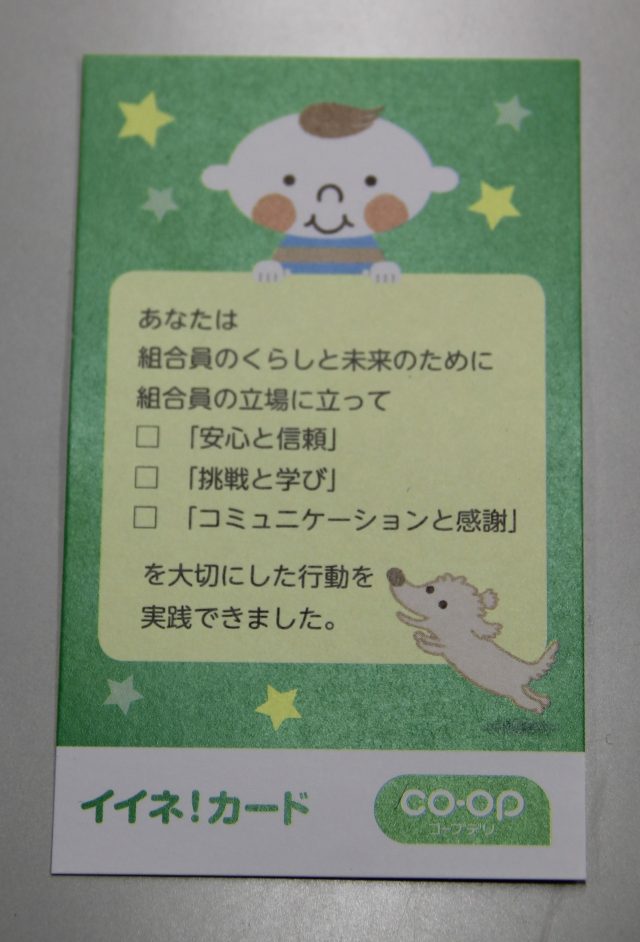 あなたは
組合員のくらしと未来のために
組合員の立場に立って
□ 「安心と信頼」
□ 「挑戦と学び」
□ 「コミュニケーションと感謝」
を大切にした行動を
実践できました。
イイネ！カード
CO・OP
コープデリ